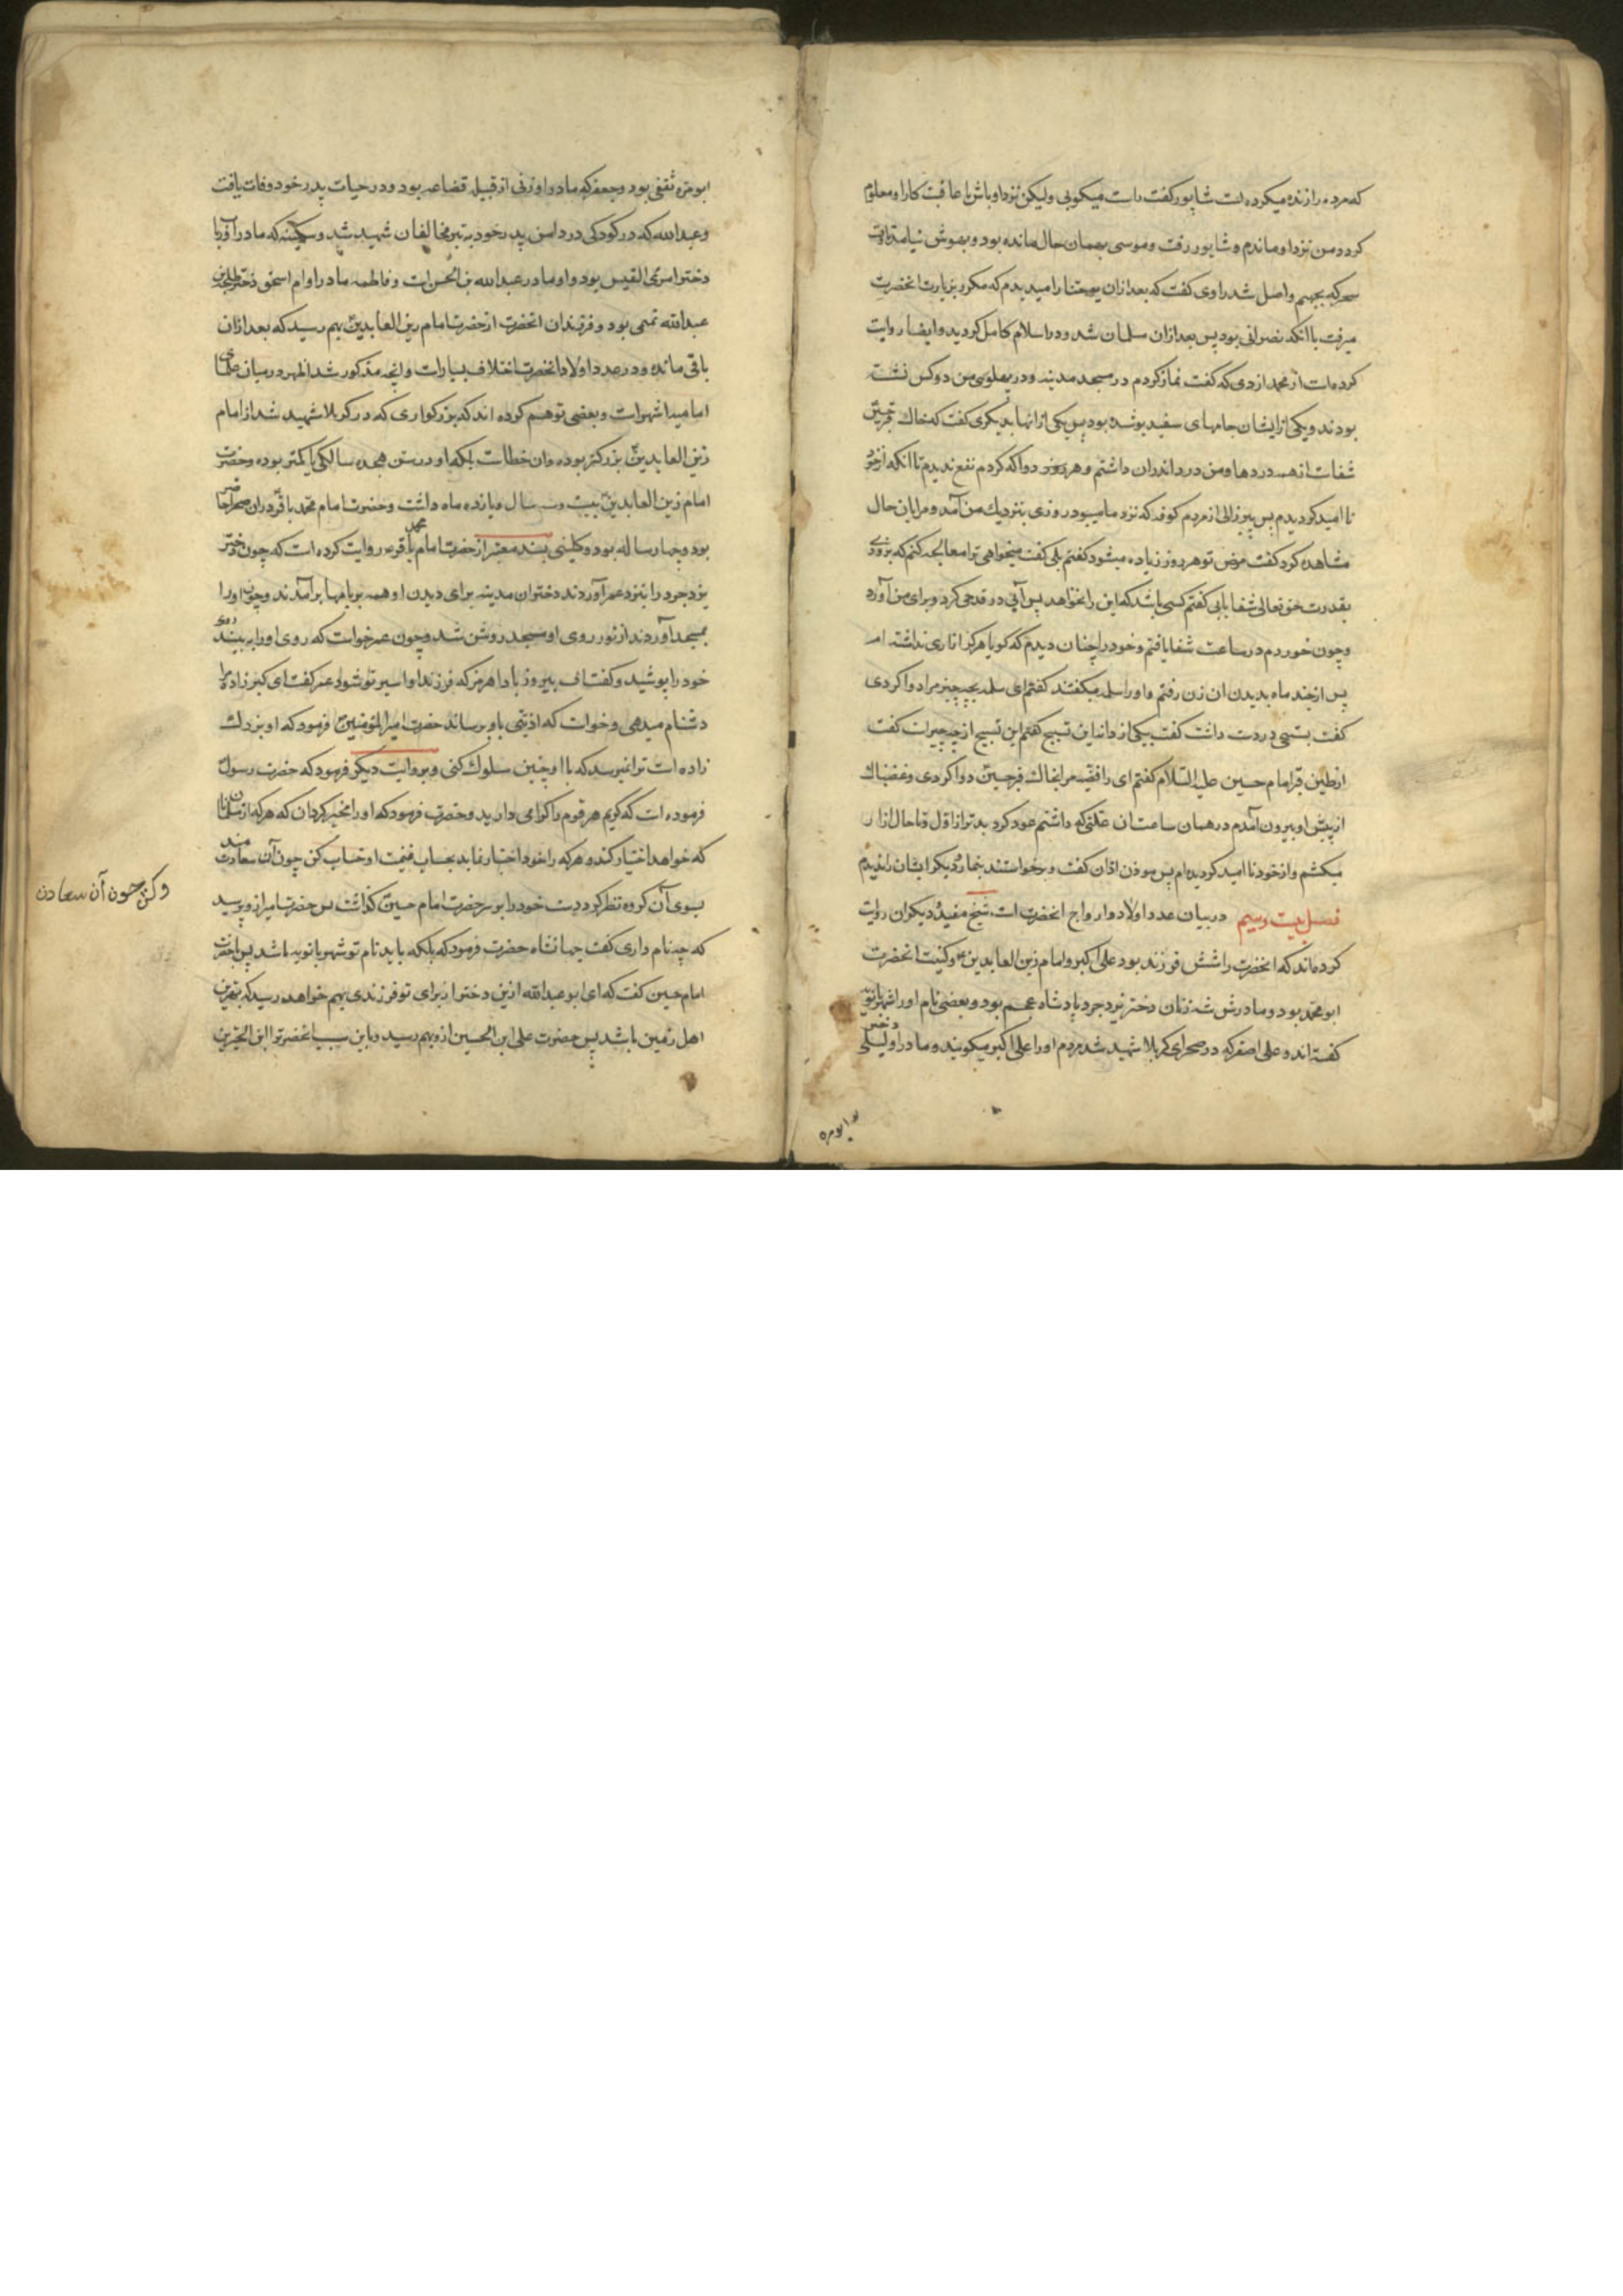 که مرده را زنده میکرده است شاپور گفت راست میکویی ولیکن نزد او باش تا عاقبت کار او معلوم
کردد من نزد او ماندم و شاپور رفت و موسی بهمان حال مانده بود و بهوش نیامد تا وقت
سحر که بجهنم واصل شد راوی کفت که بعد از ان یوحنا را میدیدم که مکرر بزیارت انحضرت
میرفت با انکه نصرانی بود پس بعد از ان مسلمان شد و در اسلام کامل کردید و ایضا روایت
کرده است از محمد ازدی که کفت نماز کردم در مسجد مدینه و در پهلوی من دو کس نشسته
بودند و یکی از ایشان جامهای سفید پوشیده بود پس یکی از انها بدیکری کفت که خاک قبر حسین
شفاست از همه دردها و من درد اندران داشتم و هر چند دوا که کردم نفع ندیدم تا انکه از خود
نا امید کردیدم پس پیر زالی از مردم کوفه که نزد ما میبود روزی بنزدیک من آمد و مرا بان حال
مشاهده کرد کفت مرض تو هر روز زیاده میشود کفتم بلی کفت میخواهی ترا معالجه کنم که بزودی
بقدرت حق تعالی شفا یابی کفتم کسی باشد که این را نخواهد پس آبی در قدحی کرد و برای من آورد
و چون خوردم در ساعت شفا یافتم و خود را چنان دیدم که کویا هرکز ازاری نداشته ام
پس از چند ماه بدیدن ان زن رفتم و او را سلمه میکفتند کفتم ای سلمه بچه چیز مرا دوا کردی
کفت بتسبیحی در دست داشت کفت بیکی از دانهای این تسبیح کفتم این تسبیح از چه چیز است کفت
از طین قبر امام حسین علیه السلام کفتم ای رافضیه مرا بخاک قبر حسین دوا کردی و غضبناک
از پیش او بیرون آمدم در همان ساعت ان علتی که داشتم عود کرد بدتر از اول و تا حال ازار
میکشم و از خود نا امید کردیده ام پس موذن اذان کفت و برخواستند بنماز و دیکر ایشان را ندیدم
فصل بیست و سیم در بیان عدد اولاد و ازواج انحضرت است شیخ مفید و دیکران روایت
کرده اند که انحضرت را شش فرزند بود علی اکبر و امام زین العابدین ع و کنیت انحضرت
ابو محمد بود و مادرش شه زنان دختر یزدجرد پادشاه عجم بود و بعضی نام او را شهربانویه
کفته اند و علی اصغر که در صحرای کربلا شهید شد مردم او را علی اکبر میکویند و مادر او لیلی دختر
ابو مره
ابو مره ثقفی بود و جعفر که مادر او زنی از قبیله قضاعه بود و در حیات پدر خود وفات یافت
و عبدالله که در کودکی در دامن پدر خود به تیر مخالفان شهید شد و سکینه که مادر او رباب
دختر امرئ القیس بود و او مادر عبدالله بن الحسن است و فاطمه مادر او ام اسحق دختر طلحة بن
عبدالله تمیمی بود و فرزندان انحضرت از حضرت امام زین العابدین بهم رسید که بعد از ان
باقی مانده و در عدد اولاد انحضرت اختلاف بسیار است و انچه مذکور شد اظهر در میان علمای
امامیه اشهر است و بعضی توهم کرده اند که بزرکواری که در کربلا شهید شد از امام
زین العابدین بزرکتر بوده و ان خطاست بلکه او در سن هجده سالکی یا کمتر بوده و حضرت
امام زین العابدین بیست و سه سال و یازده ماه داشت و حضرت امام محمد باقر در ان صحرا حاضر
بود و چهار ساله بود و کلینی بسند معتبر از حضرت امام محمد باقر ع روایت کرده است که چون دختر
یزدجرد را بنزد عمر آوردند دختران مدینه برای دیدن او همه بر بامها برآمدند و چون او را
بمسجد آوردند از نور روی او مسجد روشن شد و چون عمر خواست که روی او را به بیند روی
خود را پوشید و کفت اف بیروز بادا هرمز که فرزند او اسیر تو شود عمر کفت ای کبر زاده مرا
دشنام میدهی و خواست که اذیتی باو برساند حضرت امیر المؤمنین فرمود که او بزرک
زاده است ترا نمیرسد که با او چنین سلوک کنی و بروایت دیکر فرمود که حضرت رسول
فرموده است که کریم هر قوم را کرامی دارید و حضرت فرمود که او را مخیر کردان که هر که از مسلمانان
که خواهد اختیار کند و هر که را خود اختیار نماید بحساب غنیمت او حساب کن چون آن سعادتمند
وکن چون آن سعادت
بسوی آن کروه نظر کرد دست خود را بر سر حضرت امام حسین کذاشت پس حضرت امیر از او پرسید
که چه نام داری کفت جهانشاه حضرت فرمود که بلکه باید نام تو شهربانویه باشد پس با حضرت
امام حسین کفت که ای ابو عبدالله از این دختر از برای تو فرزندی بهم خواهد رسید که بهترین
اهل زمین باشد پس حضرت علی ابن الحسین از او بهم رسید و باین سبب انحضرت را ابن الخیرتین